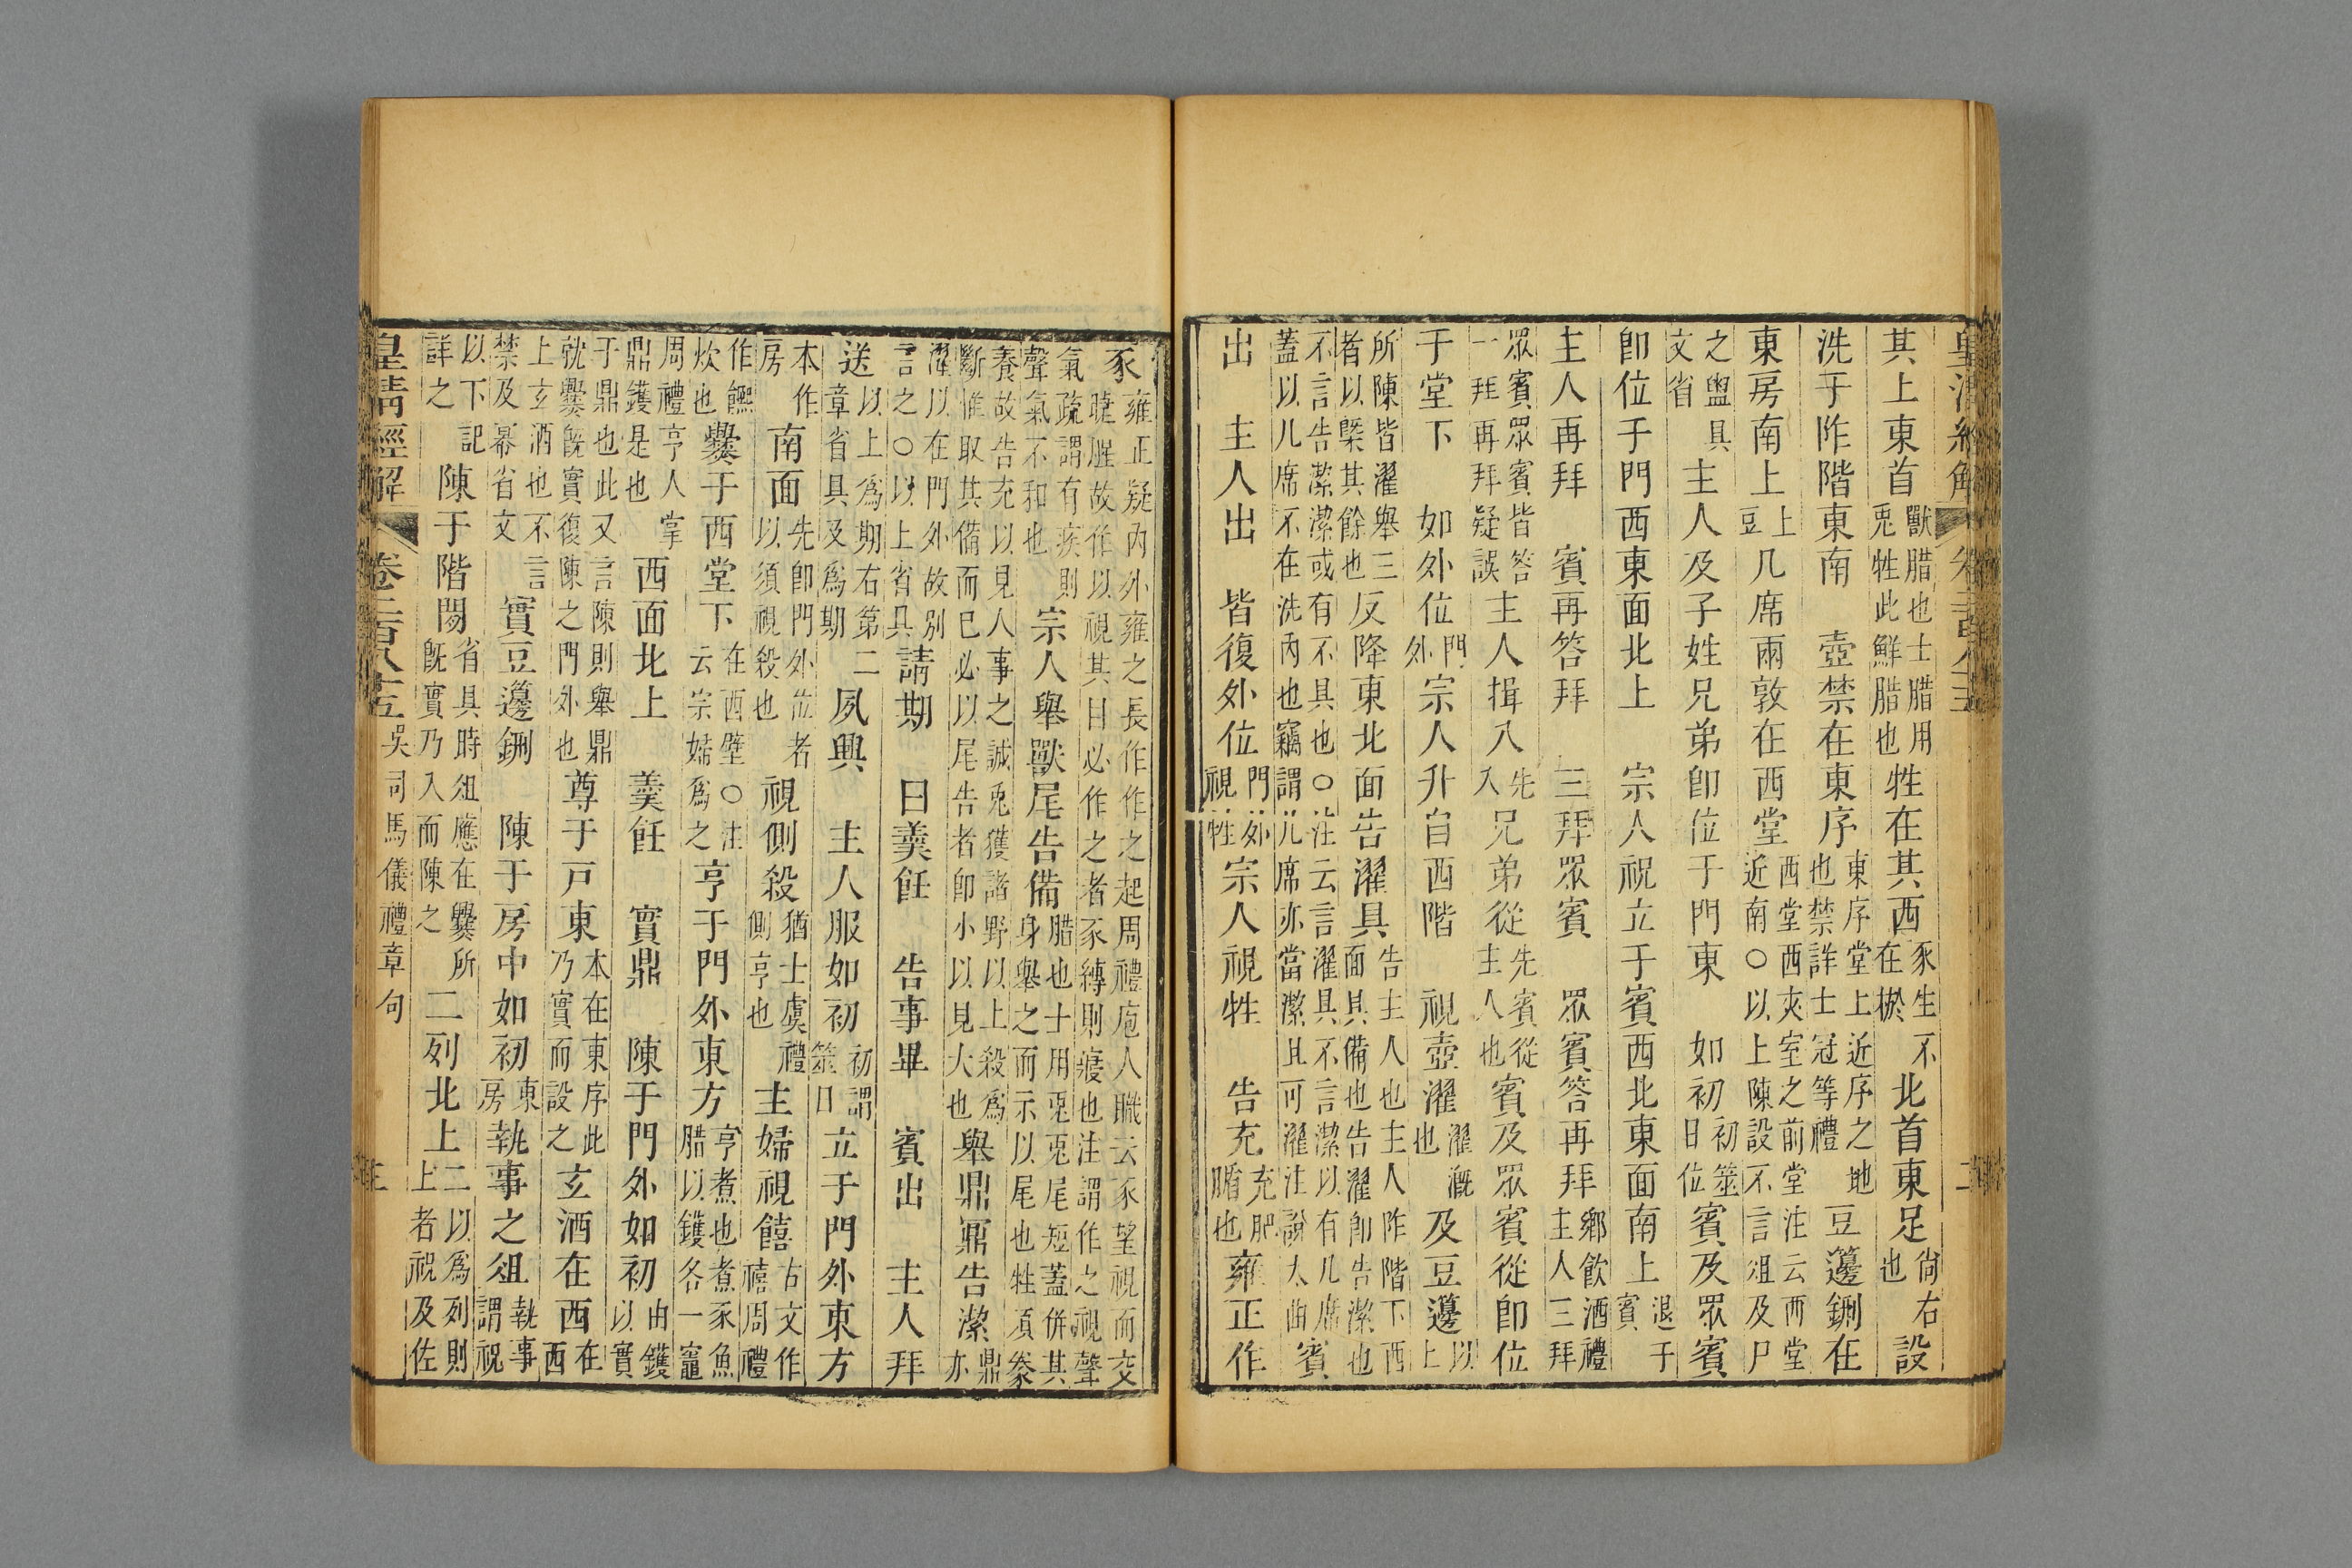 皇清經解 卷二百八十五 二
其上東首獸腊也士腊用兎牲此鮮腊也牲在其西豕生不在棜北首東足尙右也設
洗于阼階東南 壺禁在東序東序堂上近序之地也禁詳士冠等禮豆籩鉶在
東房南上上豆几席兩敦在西堂西堂西夾室之前堂注云西堂近南○以上陳設不言俎及尸
之盥具文省主人及子姓兄弟卽位于門東 如初初筮日位賓及眾賓
卽位于門西東面北上 宗人祝立于賓西北東面南上退于賓
主人再拜 賓再答拜 三拜眾賓 眾賓答再拜鄉飮酒禮主人三拜
眾賓眾賓皆答一拜再拜疑誤主人揖入先入兄弟從先賓從主人也賓及眾賓從卽位
于堂下 如外位門外宗人升自西階 視壺濯濯漑也及豆籩以上
所陳皆濯舉三者以槩其餘也反降東北面告濯具告主人也主人阼階下西面具備也告濯卽告潔也
不言告潔潔或有不具也○注云言濯具不言潔以有几席蓋以几席不在洗內也竊謂几席亦當潔且可濯注說太曲賓
出 主人出 皆復外位門外視牲宗人視牲 告充充肥腯也雍正作
豕雍正疑內外雍之長作作之起周禮庖人職云豕望視而交睫腥故作以視其目必作之者豕縛則寢也注謂作之視聲
氣疏謂有疾則聲氣不和也宗人舉獸尾告備腊也士用兎兎尾短蓋併其身舉之而示以尾也牲須豢
養故告充以見人事之誠兎獲諸野以上殺爲斷惟取其備而已必以尾告者卽小以見大也舉鼎鼏告潔鼎亦
濯以在門外故別言之○以上省具請期 曰羹飪 告事畢 賓出 主人拜
送以上爲期右第二章省具及爲期夙興 主人服如初初謂筮日立于門外東方
本作房南面先卽門外位者以須視殺也視側殺猶士虞禮側亨也主婦視饎古文作禧周禮
作饎炊也爨于西堂下在西壁○注云宗婦爲之亨于門外東方亨煮也煮豕魚腊以鑊各一竈
周禮亨人掌鼎鑊是也西面北上 羹飪 實鼎 陳于門外如初由鑊以實
于鼎也此又言陳則舉鼎就爨旣實復陳之門外也尊于戶東本在東序此乃實而設之玄酒在西在西
上玄酒也不言禁及冪省文實豆籩鉶 陳于房中如初東房執事之俎執事謂祝
以下記詳之陳于階閒省具時俎應在爨所旣實乃入而陳之二列北上二以爲列則上者祝及佐
皇清經解 卷二百八十五 吳司馬儀禮章句